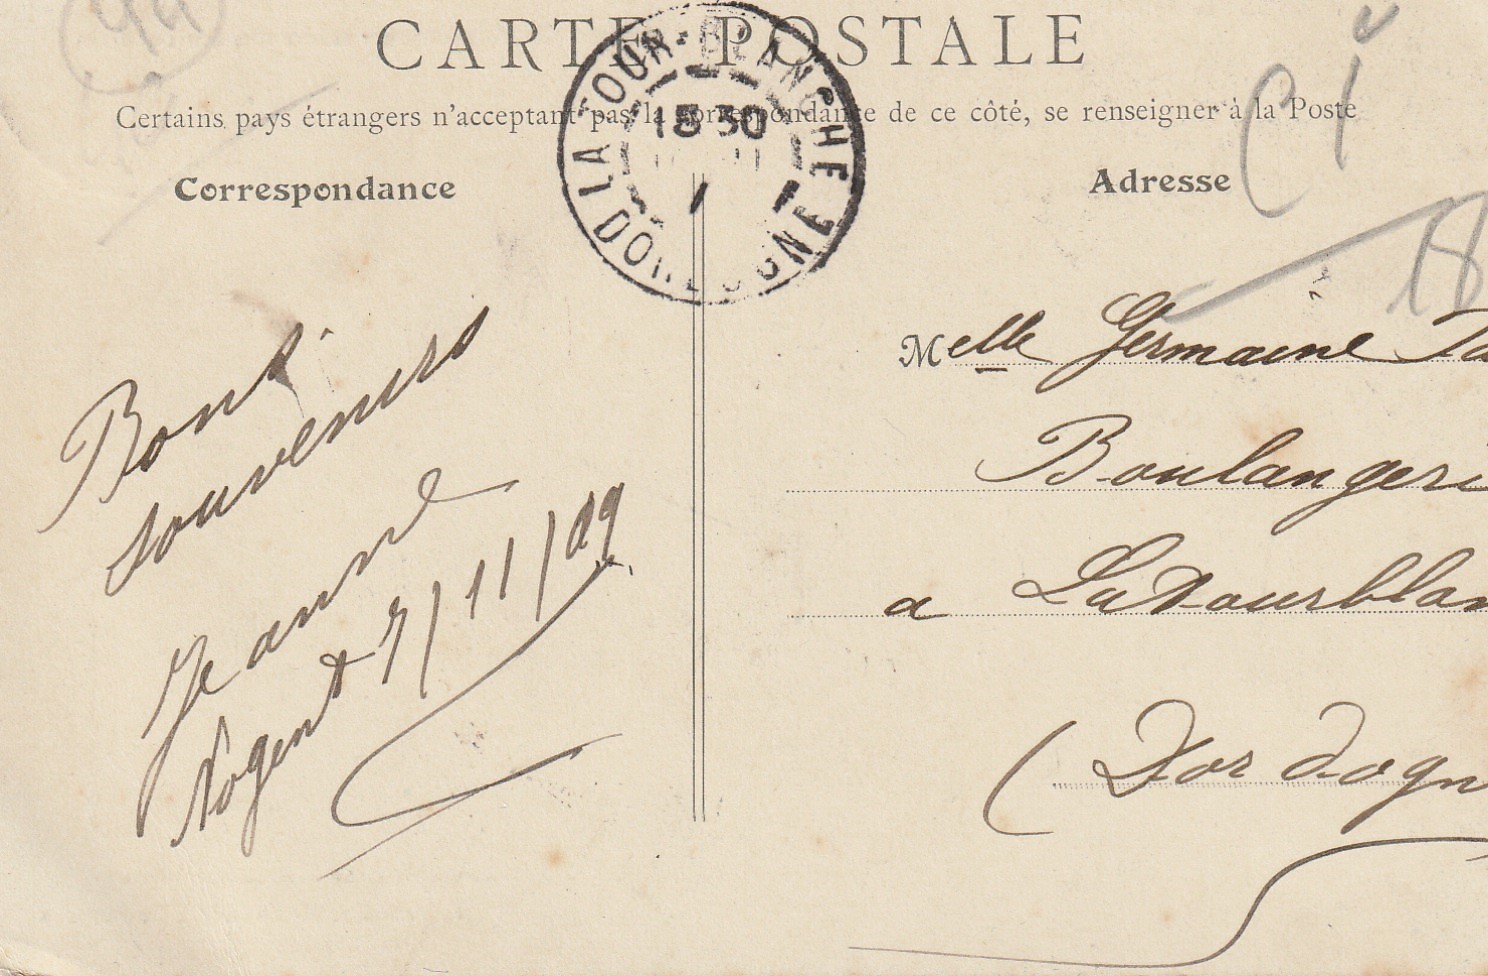 CARTE POSTALE
Certains pays étrangers n'acceptant pas la correspondance de ce côté, se renseigner à la Poste
LA TOUR-BLANCHE
15 30
DORDOGNE
Correspondance
Bons
souvenirs
Jeanne
Nogent 7/11/09
Adresse
Melle Germaine
Boulangeri
a LaTourblan
(Dordogn